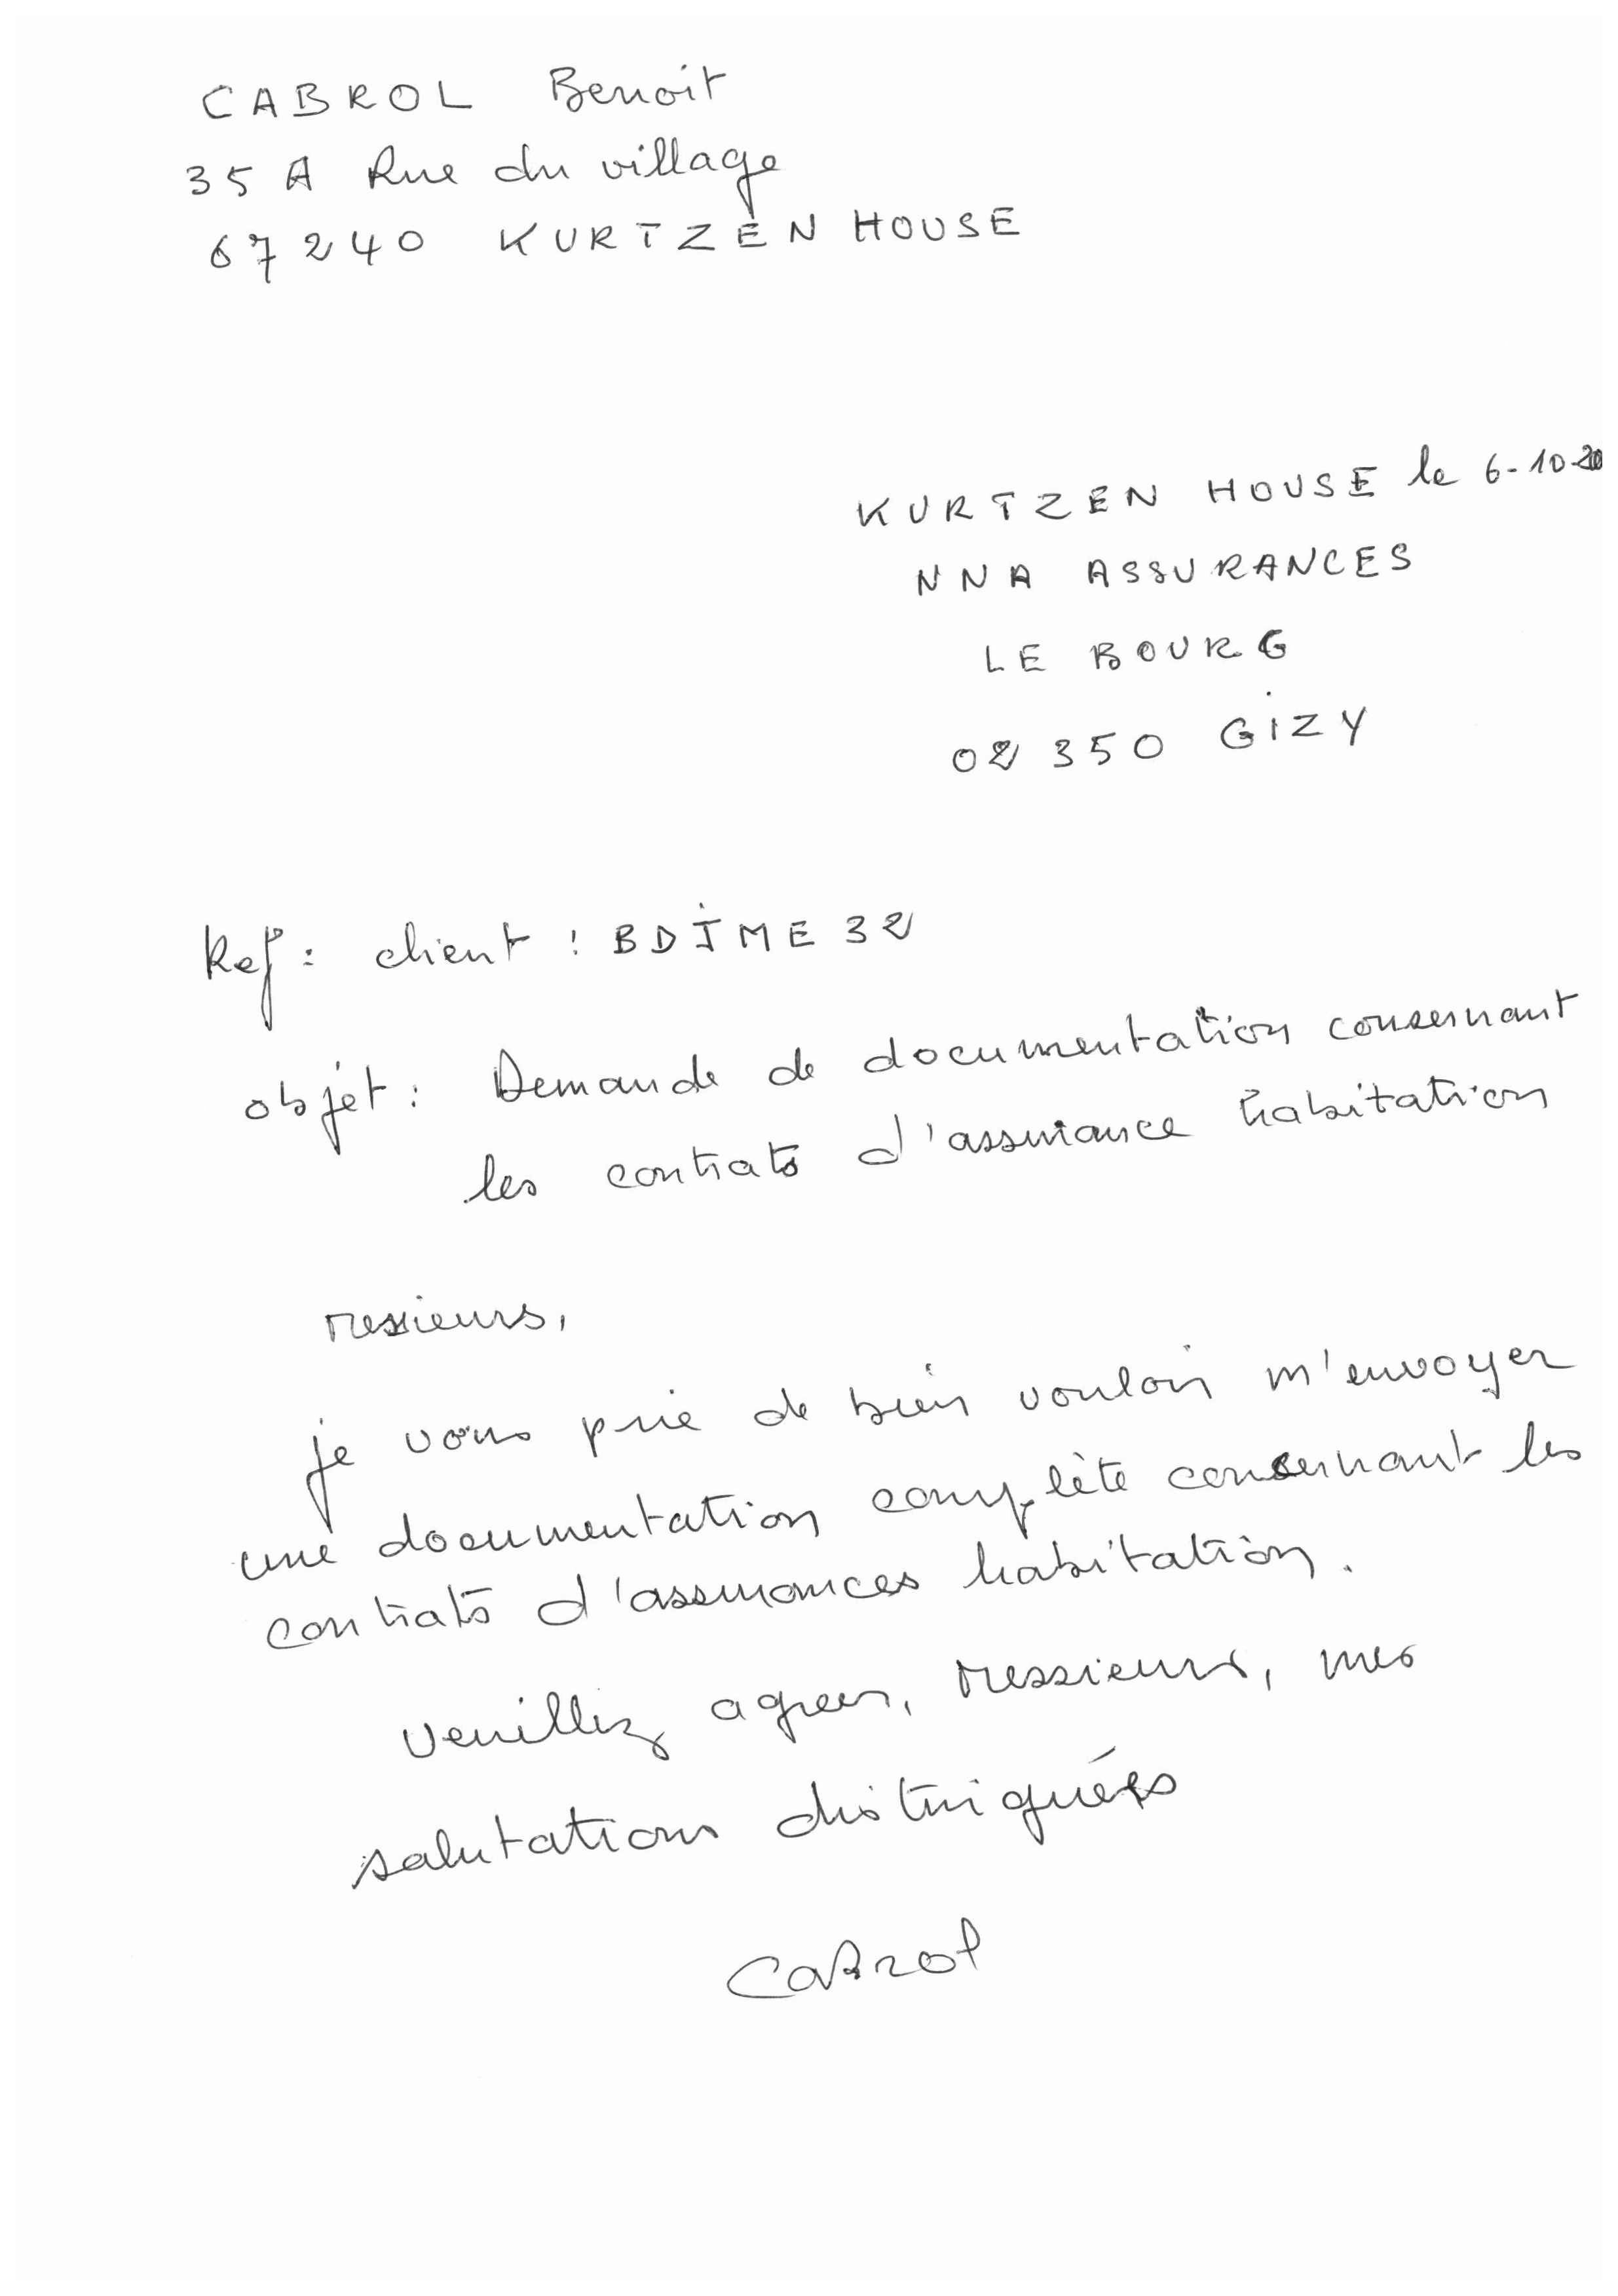 CABROL Benoit
35 A Rue du village
67240 KURTZEN HOUSE
KURTZEN HOUSE le 6-10-20
NNA ASSURANCES
LE BOURG
02 350 GIZY
Ref: client : BDIME 32
objet : Demande de documentation consernant
les contrats d'assurance habitation
Messieurs,
je vous prie de bien vouloir m'envoyer
une documentation complète concernant les
contrats d'assurances habitation.
Veuillez agreer, Messieurs, mes
salutations distinguées
Cabrol